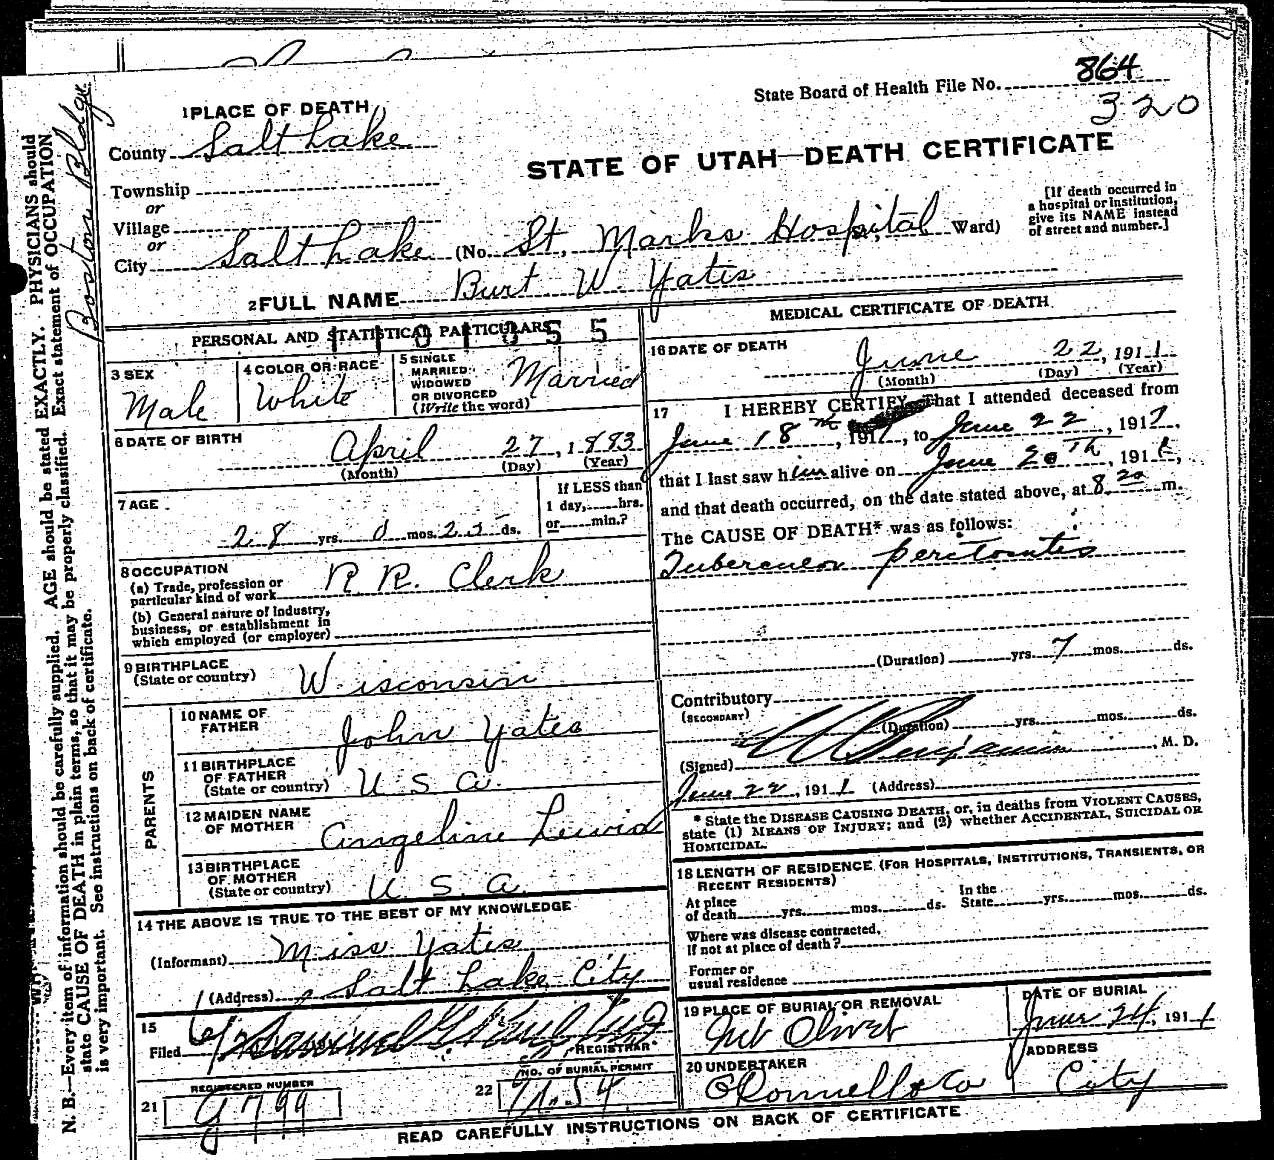 State Board of Health File No. 864
320
1 PLACE OF DEATH
County Salt Lake
STATE OF UTAH—DEATH CERTIFICATE
Township
or
Village
or
City Salt Lake (No. St. Marks Hospital St.; Ward)
[If death occurred in
a hospital or institution,
give its NAME instead
of street and number.]
2 FULL NAME Burt W. Yates
PERSONAL AND STATISTICAL PARTICULARS
3 SEX
Male
4 COLOR OR RACE
White
5 SINGLE
MARRIED
WIDOWED
OR DIVORCED
(Write the word)
Married
6 DATE OF BIRTH
April 27, 1883
(Month) (Day) (Year)
7 AGE
28 yrs. 0 mos. 25 ds.
If LESS than
1 day, hrs.
or min.?
8 OCCUPATION
(a) Trade, profession or
particular kind of work R. R. Clerk
(b) General nature of industry,
business, or establishment in
which employed (or employer)
9 BIRTHPLACE
(State or country) Wisconsin
PARENTS
10 NAME OF
FATHER John Yates
11 BIRTHPLACE
OF FATHER
(State or country) U. S. A.
12 MAIDEN NAME
OF MOTHER Angeline
13 BIRTHPLACE
OF MOTHER
(State or country) U S A
14 THE ABOVE IS TRUE TO THE BEST OF MY KNOWLEDGE
(Informant) Miss Yates
(Address) Salt Lake City
15
Filed
REGISTRAR
REGISTERED NUMBER
21
NO. OF BURIAL PERMIT
22
MEDICAL CERTIFICATE OF DEATH
16 DATE OF DEATH
June 22, 1911
(Month) (Day) (Year)
17 I HEREBY CERTIFY, That I attended deceased from
June 18th, 1911, to June 22, 1911,
that I last saw him alive on June 20th, 1911,
and that death occurred, on the date stated above, at 8 20 m.
The CAUSE OF DEATH* was as follows:
Tubercular peritonitis
(Duration) yrs. 7 mos. ds.
Contributory
(SECONDARY)
(Duration) yrs. mos. ds.
(Signed) Benjamin, M. D.
June 22, 1911 (Address)
* State the DISEASE CAUSING DEATH, or, in deaths from VIOLENT CAUSES,
state (1) MEANS OF INJURY; and (2) whether ACCIDENTAL, SUICIDAL OR
HOMICIDAL.
18 LENGTH OF RESIDENCE (FOR HOSPITALS, INSTITUTIONS, TRANSIENTS, OR
RECENT RESIDENTS)
At place
of death yrs. mos. ds.
In the
State yrs. mos. ds.
Where was disease contracted,
If not at place of death?
Former or
usual residence
19 PLACE OF BURIAL OR REMOVAL
Mt Olivet
DATE OF BURIAL
June 24, 1911
20 UNDERTAKER
O'Donnell & Co
ADDRESS
City
READ CAREFULLY INSTRUCTIONS ON BACK OF CERTIFICATE
N. B.—Every item of information should be carefully supplied. AGE should be stated EXACTLY. PHYSICIANS should
state CAUSE OF DEATH in plain terms, so that it may be properly classified. Exact statement of OCCUPATION
is very important. See instructions on back of certificate.
Boston Bldg